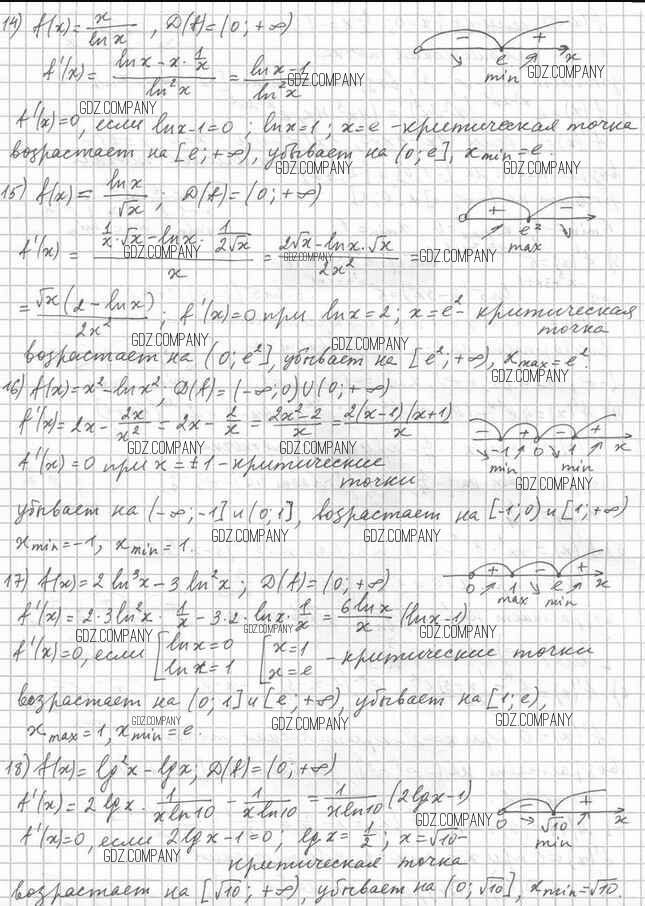 14) f(x) = x / ln x , D(f) = (0; +∞)
f'(x) = (ln x - x · 1/x) / ln²x = (ln x - 1) / ln²x
- + e x min
f'(x) = 0, если ln x - 1 = 0; ln x = 1; x = e - критическая точка
возрастает на [e; +∞), убывает на (0; e], x min = e.
15) f(x) = ln x / √x ; D(f) = (0; +∞)
+ - e² max
f'(x) = (1/x · √x - ln x · 1/(2√x)) / x = (2√x - ln x · √x) / 2x² =
= √x (2 - ln x) / 2x² ; f'(x) = 0 при ln x = 2; x = e² - критическая
точка
возрастает на (0; e²], убывает на [e²; +∞), x max = e².
16) f(x) = x² - ln x², D(f) = (-∞; 0) ∪ (0; +∞)
f'(x) = 2x - 2x/x² = 2x - 2/x = (2x² - 2)/x = 2(x-1)(x+1)/x
- + - + -1 0 1 x min min
f'(x) = 0 при x = ±1 - критические
точки
убывает на (-∞; -1] и (0; 1], возрастает на [-1; 0) и [1; +∞)
x min = -1, x min = 1.
17) f(x) = 2 ln³x - 3 ln²x ; D(f) = (0; +∞)
+ - + 0 1 e x max min
f'(x) = 2 · 3 ln²x · 1/x - 3 · 2 · ln x · 1/x = 6 ln x / x (ln x - 1)
f'(x) = 0, если [ ln x = 0 [ x = 1
ln x = 1 x = e - критические точки
возрастает на (0; 1] и [e; +∞), убывает на [1; e),
x max = 1, x min = e.
18) f(x) = lg²x - lg x ; D(f) = (0; +∞)
f'(x) = 2 lg x · 1/(x ln 10) - 1/(x ln 10) = 1/(x ln 10) (2 lg x - 1)
- + 0 √10 x min
f'(x) = 0, если 2 lg x - 1 = 0; lg x = 1/2 ; x = √10 -
критическая точка
возрастает на [√10; +∞), убывает на (0; √10], x min = √10.
GDZ.COMPANY